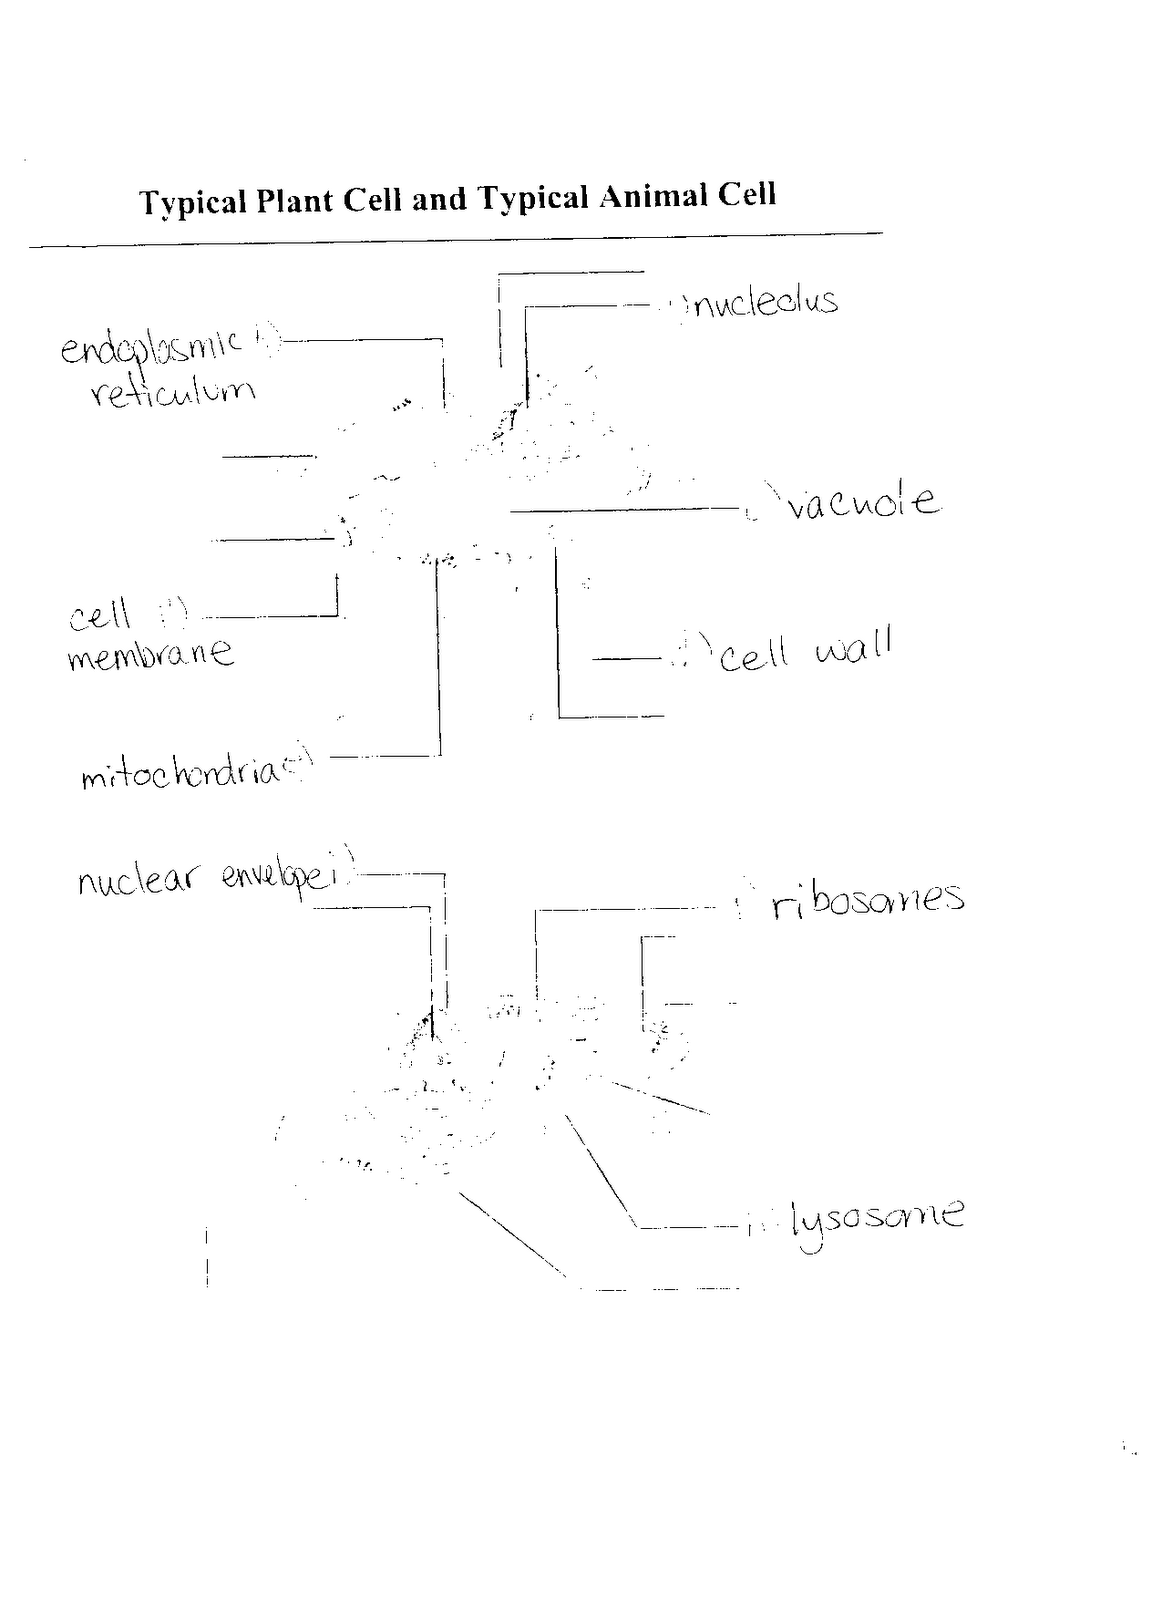 Typical Plant Cell and Typical Animal Cell
nucleolus
endoplasmic
reticulum
vacuole
cell
membrane
cell wall
mitochondria
nuclear envelope
ribosomes
lysosome